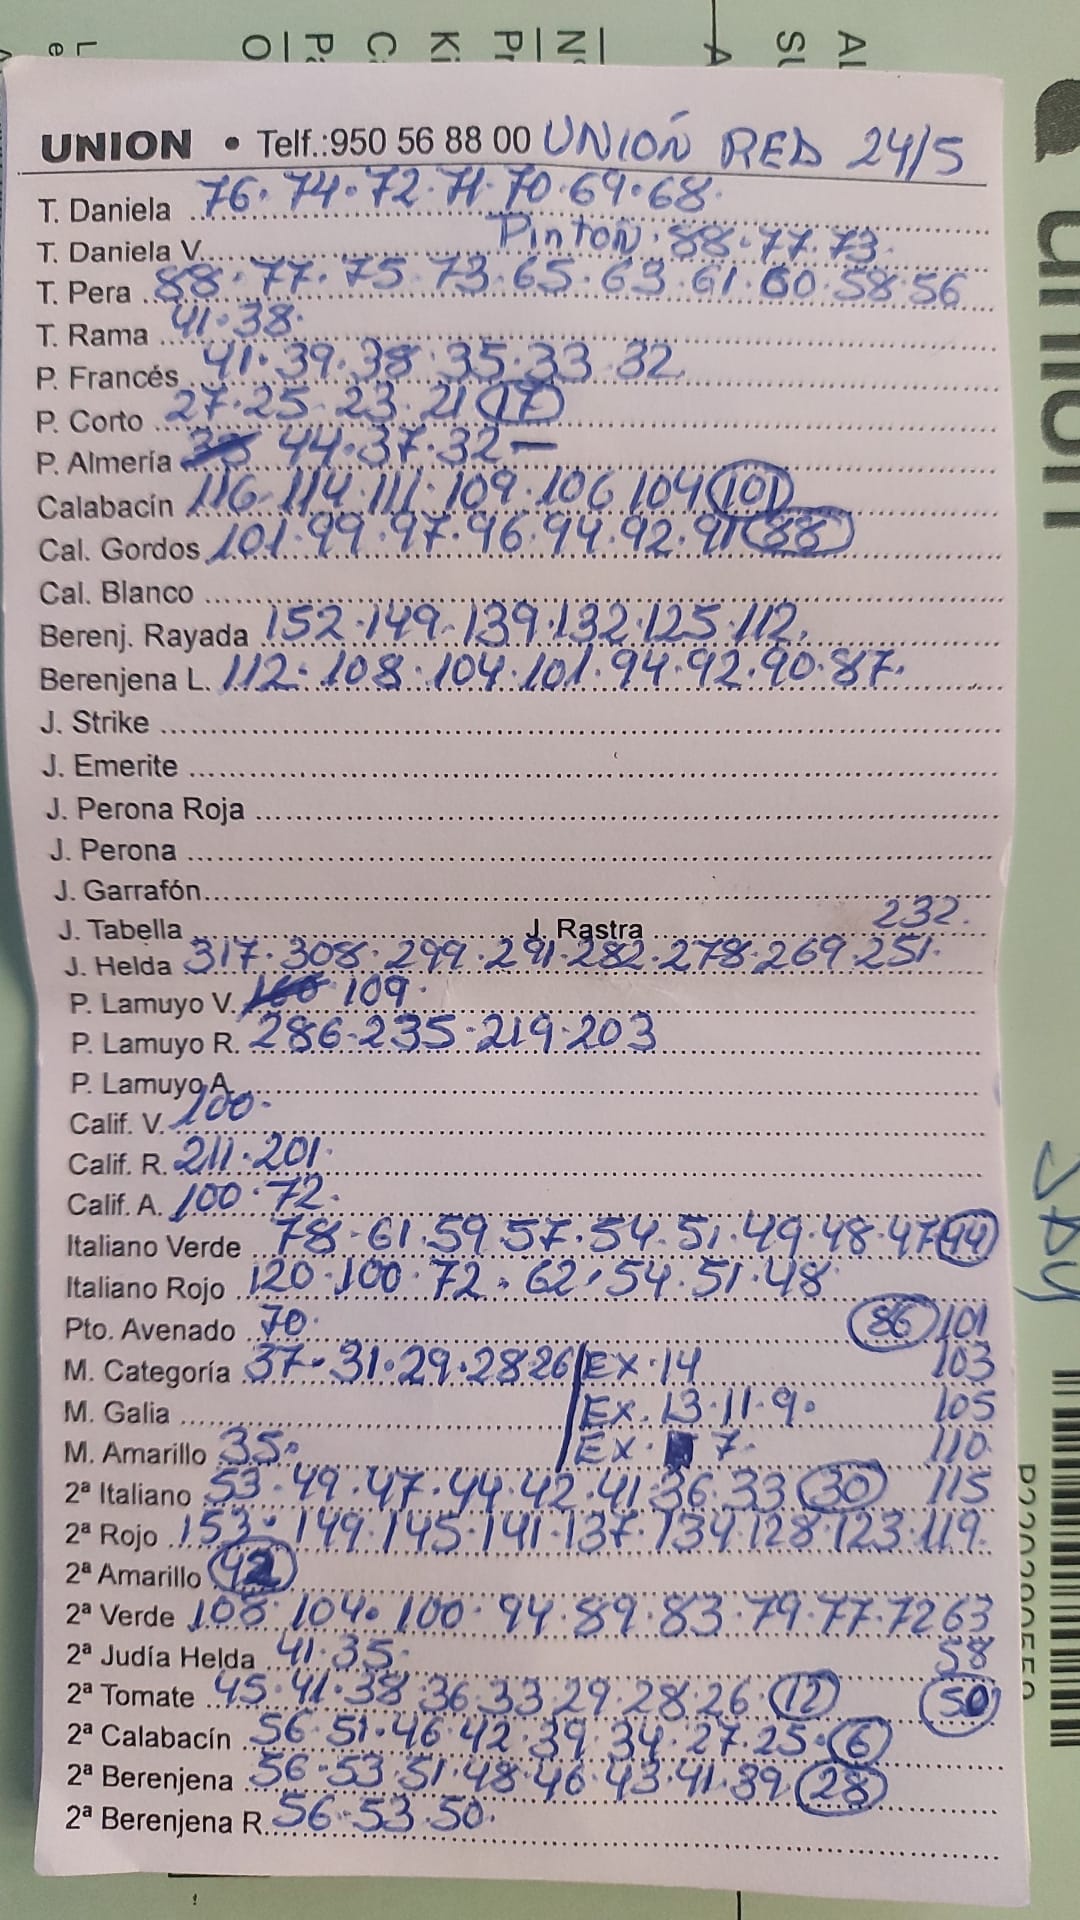 UNION • Telf.:950 56 88 00 UNION RED 24/5
T. Daniela 76. 74. 72. 71. 70. 69. 68.
T. Daniela V. Pinton. 88. 77. 73.
T. Pera 88. 77. 75. 73. 65. 63. 61. 60. 58. 56
T. Rama 41. 38.
P. Francés 41. 39. 38. 35. 33. 32.
P. Corto 27. 25. 23. 21 17
P. Almería 44. 37. 32 –
Calabacín 116. 114. 111. 109. 106 104 101
Cal. Gordos 101. 99. 97. 96. 94. 92. 91 88
Cal. Blanco
Berenj. Rayada 152. 149. 139. 132. 125. 112.
Berenjena L. 112. 108. 104. 101. 94. 92. 90. 87.
J. Strike
J. Emerite
J. Perona Roja
J. Perona
J. Garrafón
J. Tabella J. Rastra 232.
J. Helda 317. 308. 299. 291. 282. 278. 269. 251.
P. Lamuyo V. 109.
P. Lamuyo R. 286. 235. 219. 203
P. Lamuyo A.
Calif. V. 100.
Calif. R. 211. 201.
Calif. A. 100. 72.
Italiano Verde 78. 61. 59. 57. 54. 51. 49. 48. 47 44
Italiano Rojo 120. 100. 72. 62. 54. 51. 48
Pto. Avenado 70. 86 101
M. Categoría 37. 31. 29. 28 26 Ex. 14 103
M. Galia Ex. 13. 11. 9. 105
M. Amarillo 35. Ex. 7. 110
2ª Italiano 53. 49. 47. 44. 42. 41. 36. 33 30 115
2ª Rojo 153. 149. 145. 141. 137. 134. 128. 123. 119.
2ª Amarillo 42
2ª Verde 108. 104. 100. 94. 89. 83. 79. 77. 72 63
2ª Judía Helda 41. 35. 58
2ª Tomate 45. 41. 38 36 33. 29. 28. 26. 12 50
2ª Calabacín 56. 51. 46. 42. 39. 34. 27. 25. 6
2ª Berenjena 56. 53. 51. 48. 46. 43. 41. 39. 28
2ª Berenjena R. 56. 53. 50.